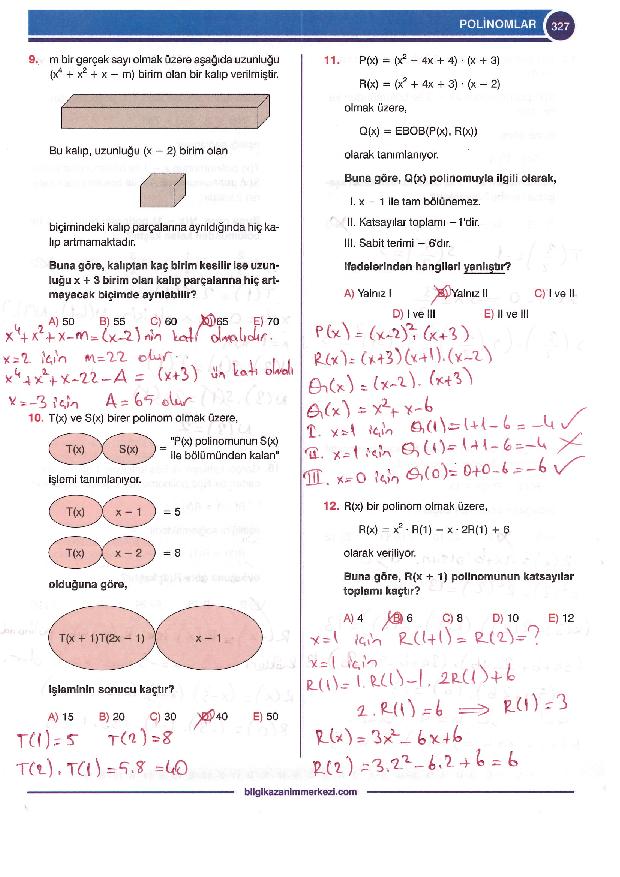 POLİNOMLAR 327
9. m bir gerçek sayı olmak üzere aşağıda uzunluğu
(x⁴ + x² + x − m) birim olan bir kalıp verilmiştir.
Bu kalıp, uzunluğu (x − 2) birim olan
biçimindeki kalıp parçalarına ayrıldığında hiç ka-
lıp artmamaktadır.
Buna göre, kalıptan kaç birim kesilir ise uzun-
luğu x + 3 birim olan kalıp parçalarına hiç art-
mayacak biçimde ayrılabilir?
A) 50 B) 55 C) 60 D) 65 E) 70
x⁴+x²+x-m=(x-2) nin katı olmalıdır.
x=2 için m=22 olur.
x⁴+x²+x-22-A = (x+3) ün katı olmalı
x=-3 için A=65 olur
10. T(x) ve S(x) birer polinom olmak üzere,
T(x) S(x) = "P(x) polinomunun S(x)
ile bölümünden kalan"
işlemi tanımlanıyor.
T(x) x − 1 = 5
T(x) x − 2 = 8
olduğuna göre,
T(x + 1)T(2x − 1) x − 1
işleminin sonucu kaçtır?
A) 15 B) 20 C) 30 D) 40 E) 50
T(1)=5 T(2)=8
T(2).T(1)=5.8=40
11. P(x) = (x² − 4x + 4) · (x + 3)
R(x) = (x² + 4x + 3) · (x − 2)
olmak üzere,
Q(x) = EBOB(P(x), R(x))
olarak tanımlanıyor.
Buna göre, Q(x) polinomuyla ilgili olarak,
I. x − 1 ile tam bölünemez.
II. Katsayılar toplamı −1'dir.
III. Sabit terimi − 6'dır.
ifadelerinden hangileri yanlıştır?
A) Yalnız I B) Yalnız II C) I ve II
D) I ve III E) II ve III
P(x)=(x-2)².(x+3)
R(x)=(x+3)(x+1).(x-2)
Q(x)=(x-2).(x+3)
Q(x)=x²+x-6
I. x=1 için Q(1)=1+1-6=-4 ✓
II. x=1 için Q(1)=1+1-6=-4 ✗
III. x=0 için Q(0)=0+0-6=-6 ✓
12. R(x) bir polinom olmak üzere,
R(x) = x² · R(1) − x · 2R(1) + 6
olarak veriliyor.
Buna göre, R(x + 1) polinomunun katsayılar
toplamı kaçtır?
A) 4 B) 6 C) 8 D) 10 E) 12
x=1 için R(1+1)=R(2)=?
x=1 için
R(1)=1.R(1)-1.2R(1)+6
2.R(1)=6 ⟹ R(1)=3
R(x)=3x²-6x+6
R(2)=3.2²-6.2+6=6
bilgikazanimmerkezi.com